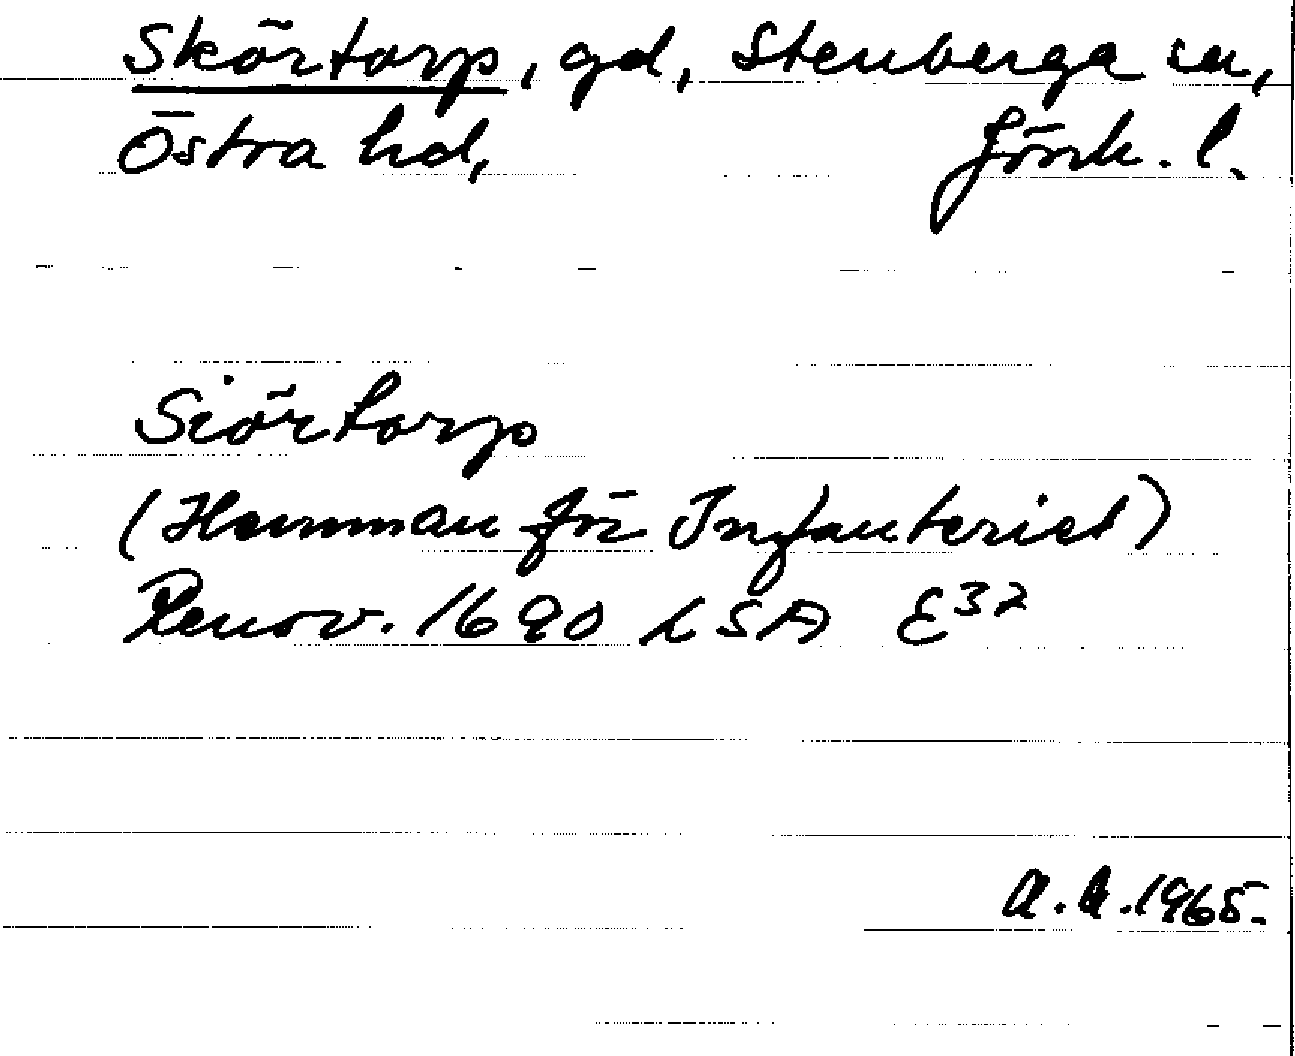 Skörtorp, gd, Stenberga sn,
Östra hd, Jönk. l.
Siörtorp
(Hemman för Infanteriet)
Renov. 1690 LSA E32
A.A.1965.